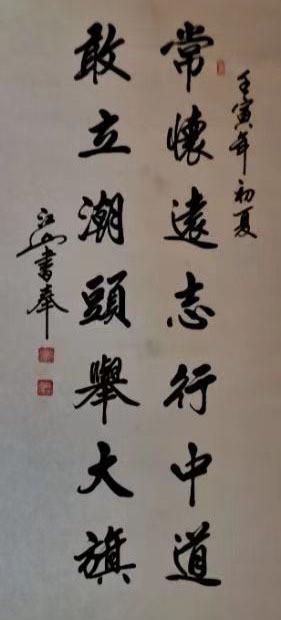 壬寅年初夏
常懷遠志行中道
敢立潮頭舉大旗
江山書奉